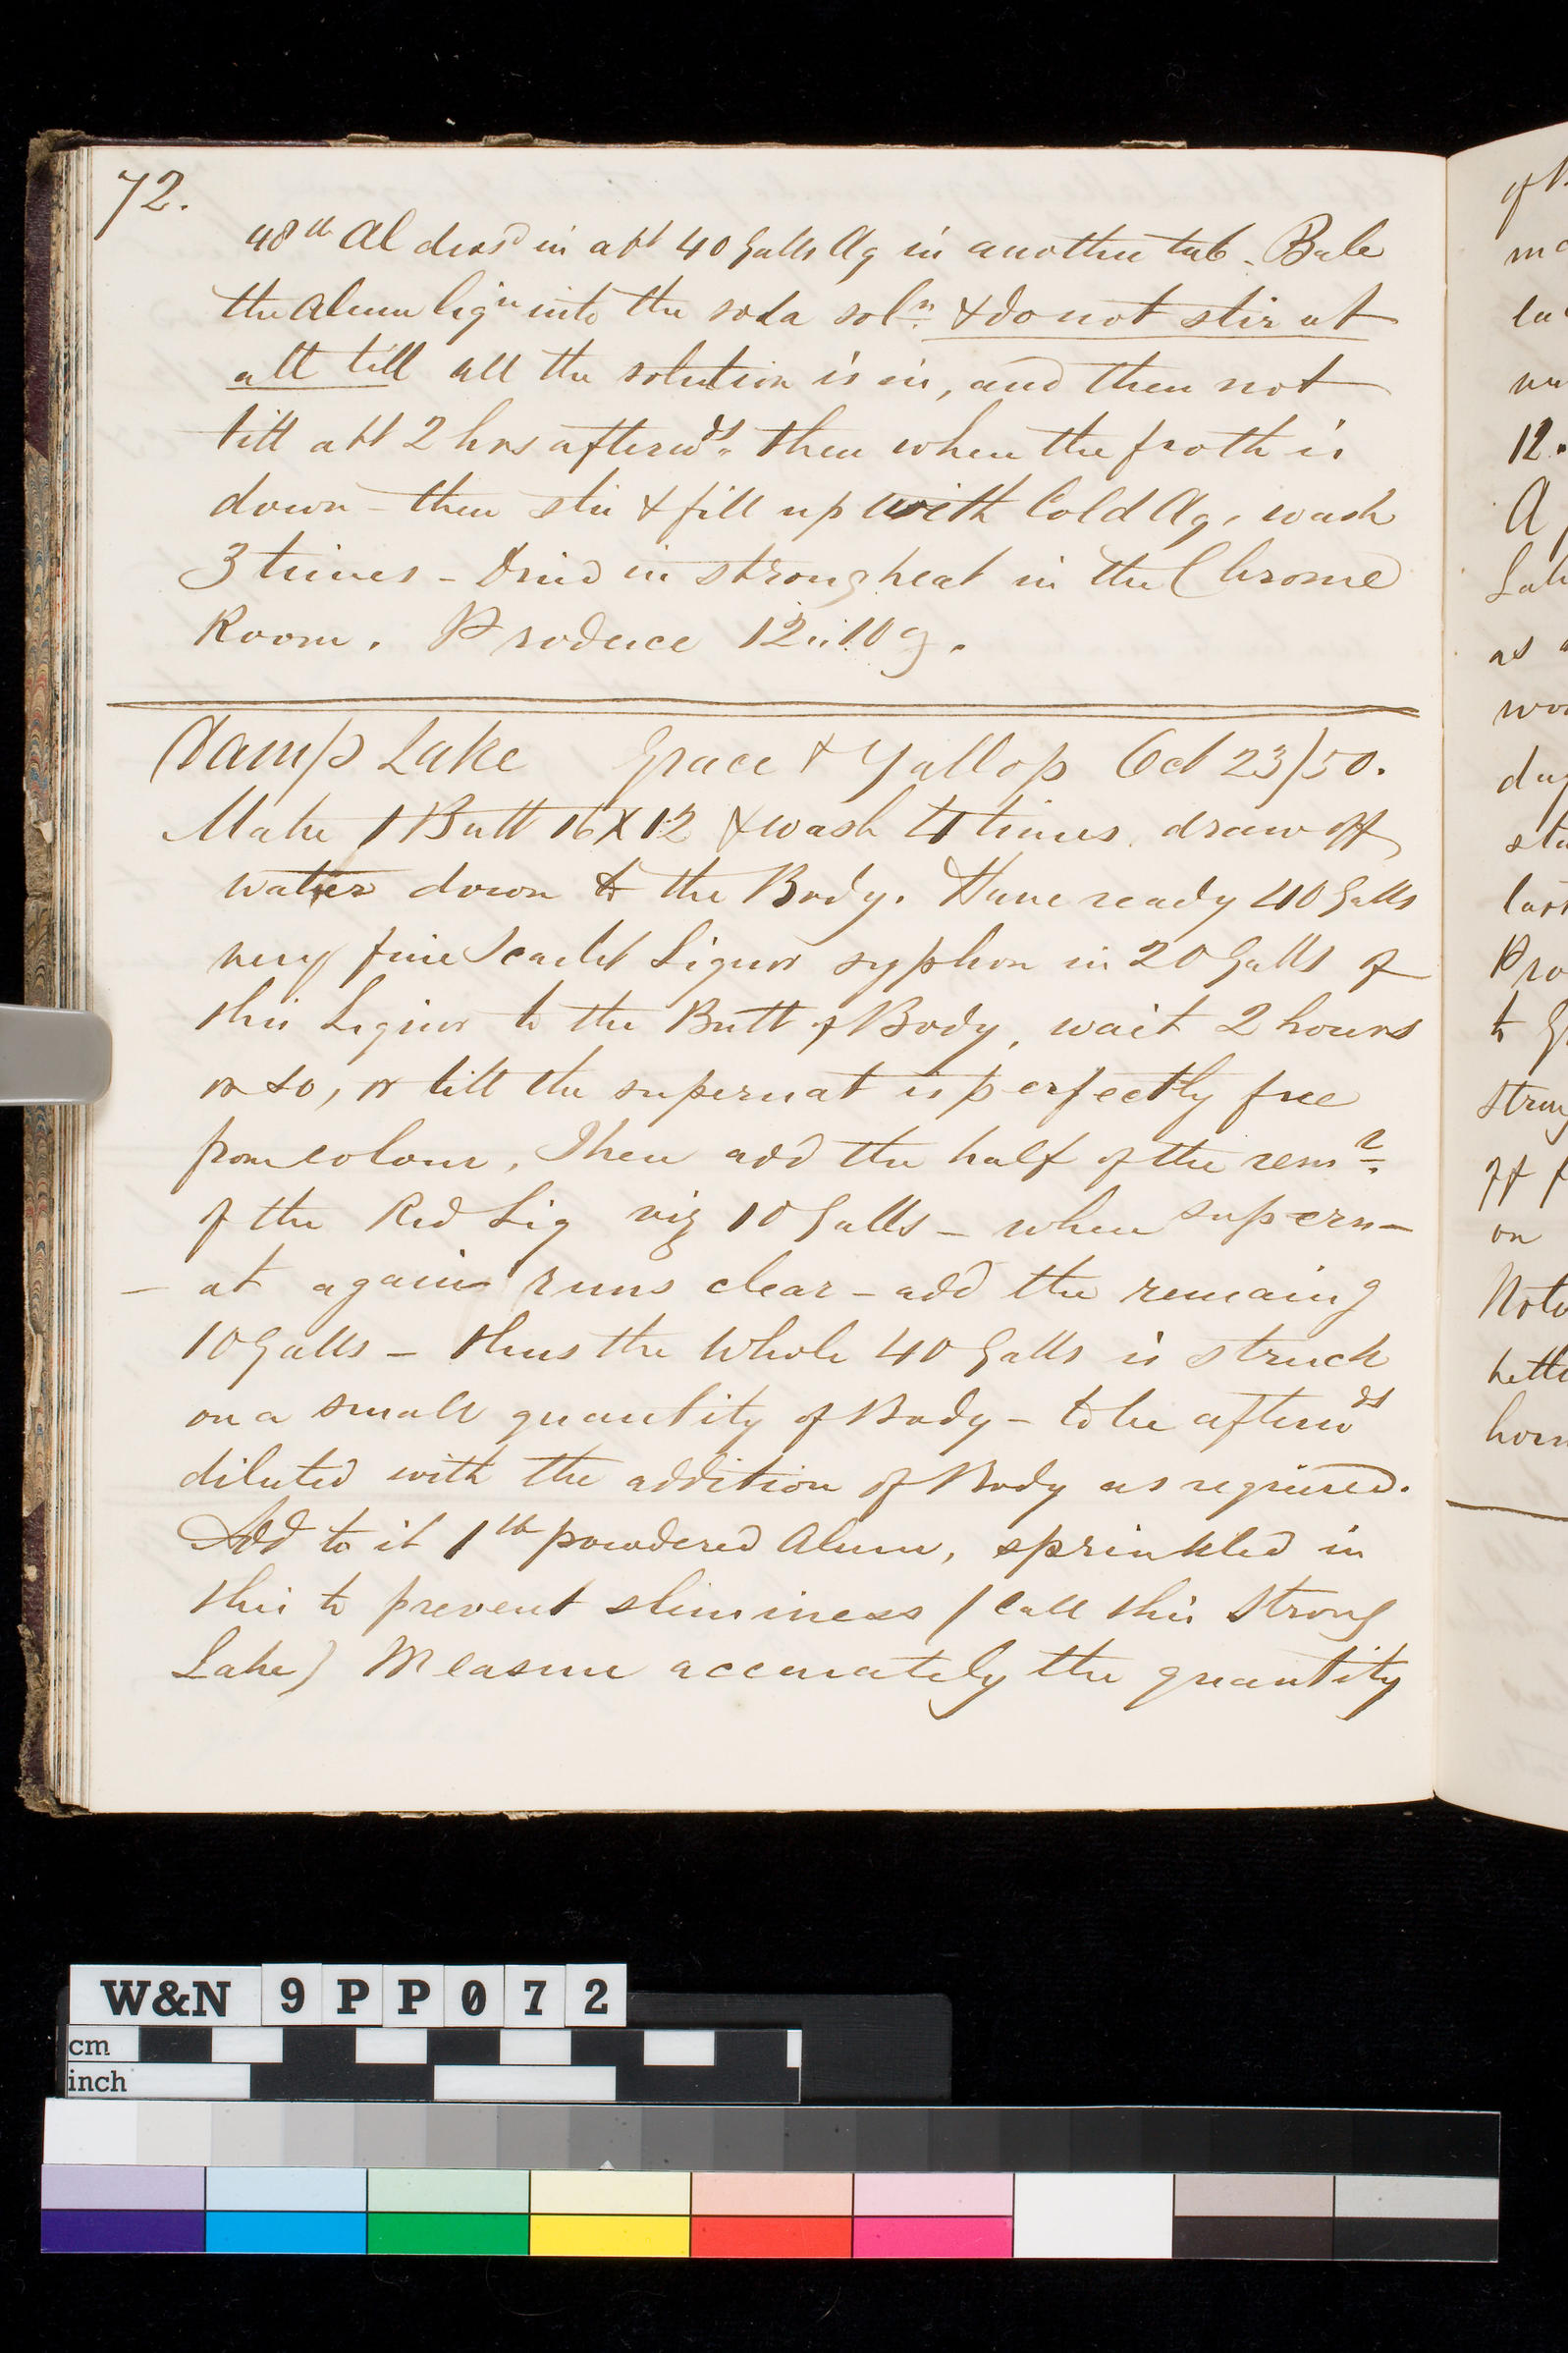 72.
48 lb Al dissd in abt 40 Galls Aq in another tub. Bale
the Alum liqr into the soda soln. & do not stir at
all till all the solution is in, and then not
till abt 2 hrs afterwds. then when the froth is
down – then stir & fill up with Cold Aq, wash
3 times – Dried in strong heat in the Chrome
Room. Produce 12
Damp Lake Grace & Yallop Oct 23/50.
Make 1 Butt 16 X 12 & wash 4 times, draw off
water down to the Body. Have ready 40 Galls
very fine Scarlet Liquor syphon in 20 Galls of
this Liquor to the Butt of Body, wait 2 hours
or so, or till the supernat is perfectly free
from colour, Then add the half of the remr.
of the Red Liq viz 10 Galls – when supern–
– at again runs clear – add the remaing
10 Galls – thus the Whole 40 Galls is struck
on a small quantity of Body – to be afterwds
diluted with the addition of Body as required.
Add to it 1 lb powdered Alum, sprinkled in
this to prevent sliminess (Call this Strong
Lake) Measure accurately the quantity
of
12.
A
as
on
W&N 9PP072
cm
inch